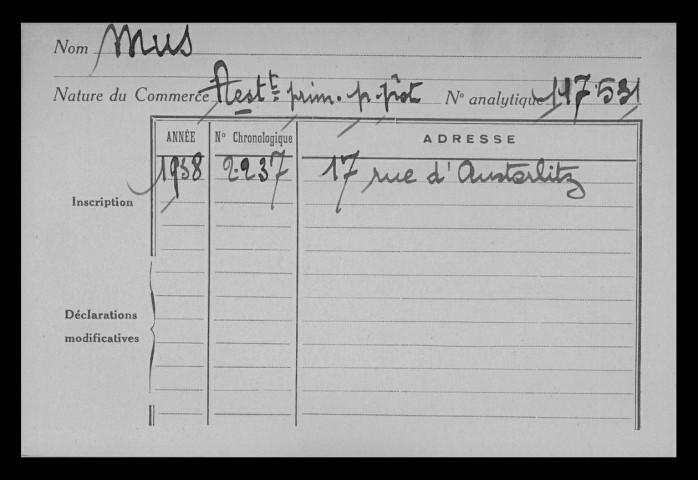 Nom Mus
Nature du Commerce Rest t prim. p. pôt N° analytique 117.531
ANNÉE N° Chronologique ADRESSE
Inscription 1938 2.237 17 rue d'Austerlitz
Déclarations
modificatives